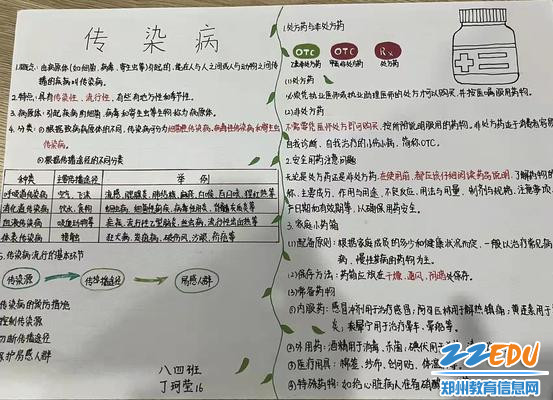 传染病
1.概念：由病原体(如细菌、病毒、寄生虫等)引起的、能在人与人之间或人与动物之间传
播的疾病叫传染病。
2.特点：具有传染性、流行性，有些有地方性和季节性。
3.病原体：引起疾病的细菌、病毒和寄生虫等生物称为病原体。
4.分类：①根据致病病原体的不同，传染病可分为细菌性传染病、病毒性传染病和寄生虫
性传染病。
②根据传播途径的不同分类
种类 主要传播途径 举例
呼吸道传染病 空气、飞沫 流感、肺结核、麻疹、白喉、百日咳、猩红热等
消化道传染病 饮水、食物 细菌性痢疾、病毒性肝炎
血液传染病 吸血动物等 疟疾、流行性乙型脑炎、丝虫病
体表传染病 接触 狂犬病、破伤风、沙眼、疥疮等
5.传染病流行的基本环节
传染源 传播途径 易感人群
传染病的预防措施
控制传染源
切断传播途径
保护易感人群
八四班
丁珂莹16
1.处方药与非处方药
OTC OTC Rx
乙类非处方药 甲类非处方药 处方药
(1)处方药
必须凭执业医师或执业助理医师的处方才可以购买，并按医嘱服用药物。
(2)非处方药
不需凭医师处方即可购买，按所附说明服用的药物。非处方药适于消费者容易
自我诊断、自我治疗的小伤小病，简称OTC。
2.安全用药注意问题
无论是处方药还是非处方药，在使用前，都应该仔细阅读药品说明，了解药物的
称、主要成分、作用与用途、不良反应、用法与用量、制剂与规格、注意事项、
产日期和有效期等，以确保用药安全。
3.家庭小药箱
(1)配备原则：根据家庭成员的多少和健康状况而定，一般以治疗常见病
慢性疾病的药物为主。
(2)保存方法：药箱应放在干燥、通风、阴凉处保存。
(3)常备药物
①内服药：感冒冲剂用于治疗感冒；阿司匹林用于解热镇痛；黄连素用于
炎；乘晕宁用于治疗晕车、晕船等。
②外用药：酒精用于消毒、杀菌；碘伏用于
③医疗用具：棉签、纱布、创可贴、体温
④特殊药物：如治心脏病人准备硝酸
ZZEDU
郑州教育信息网